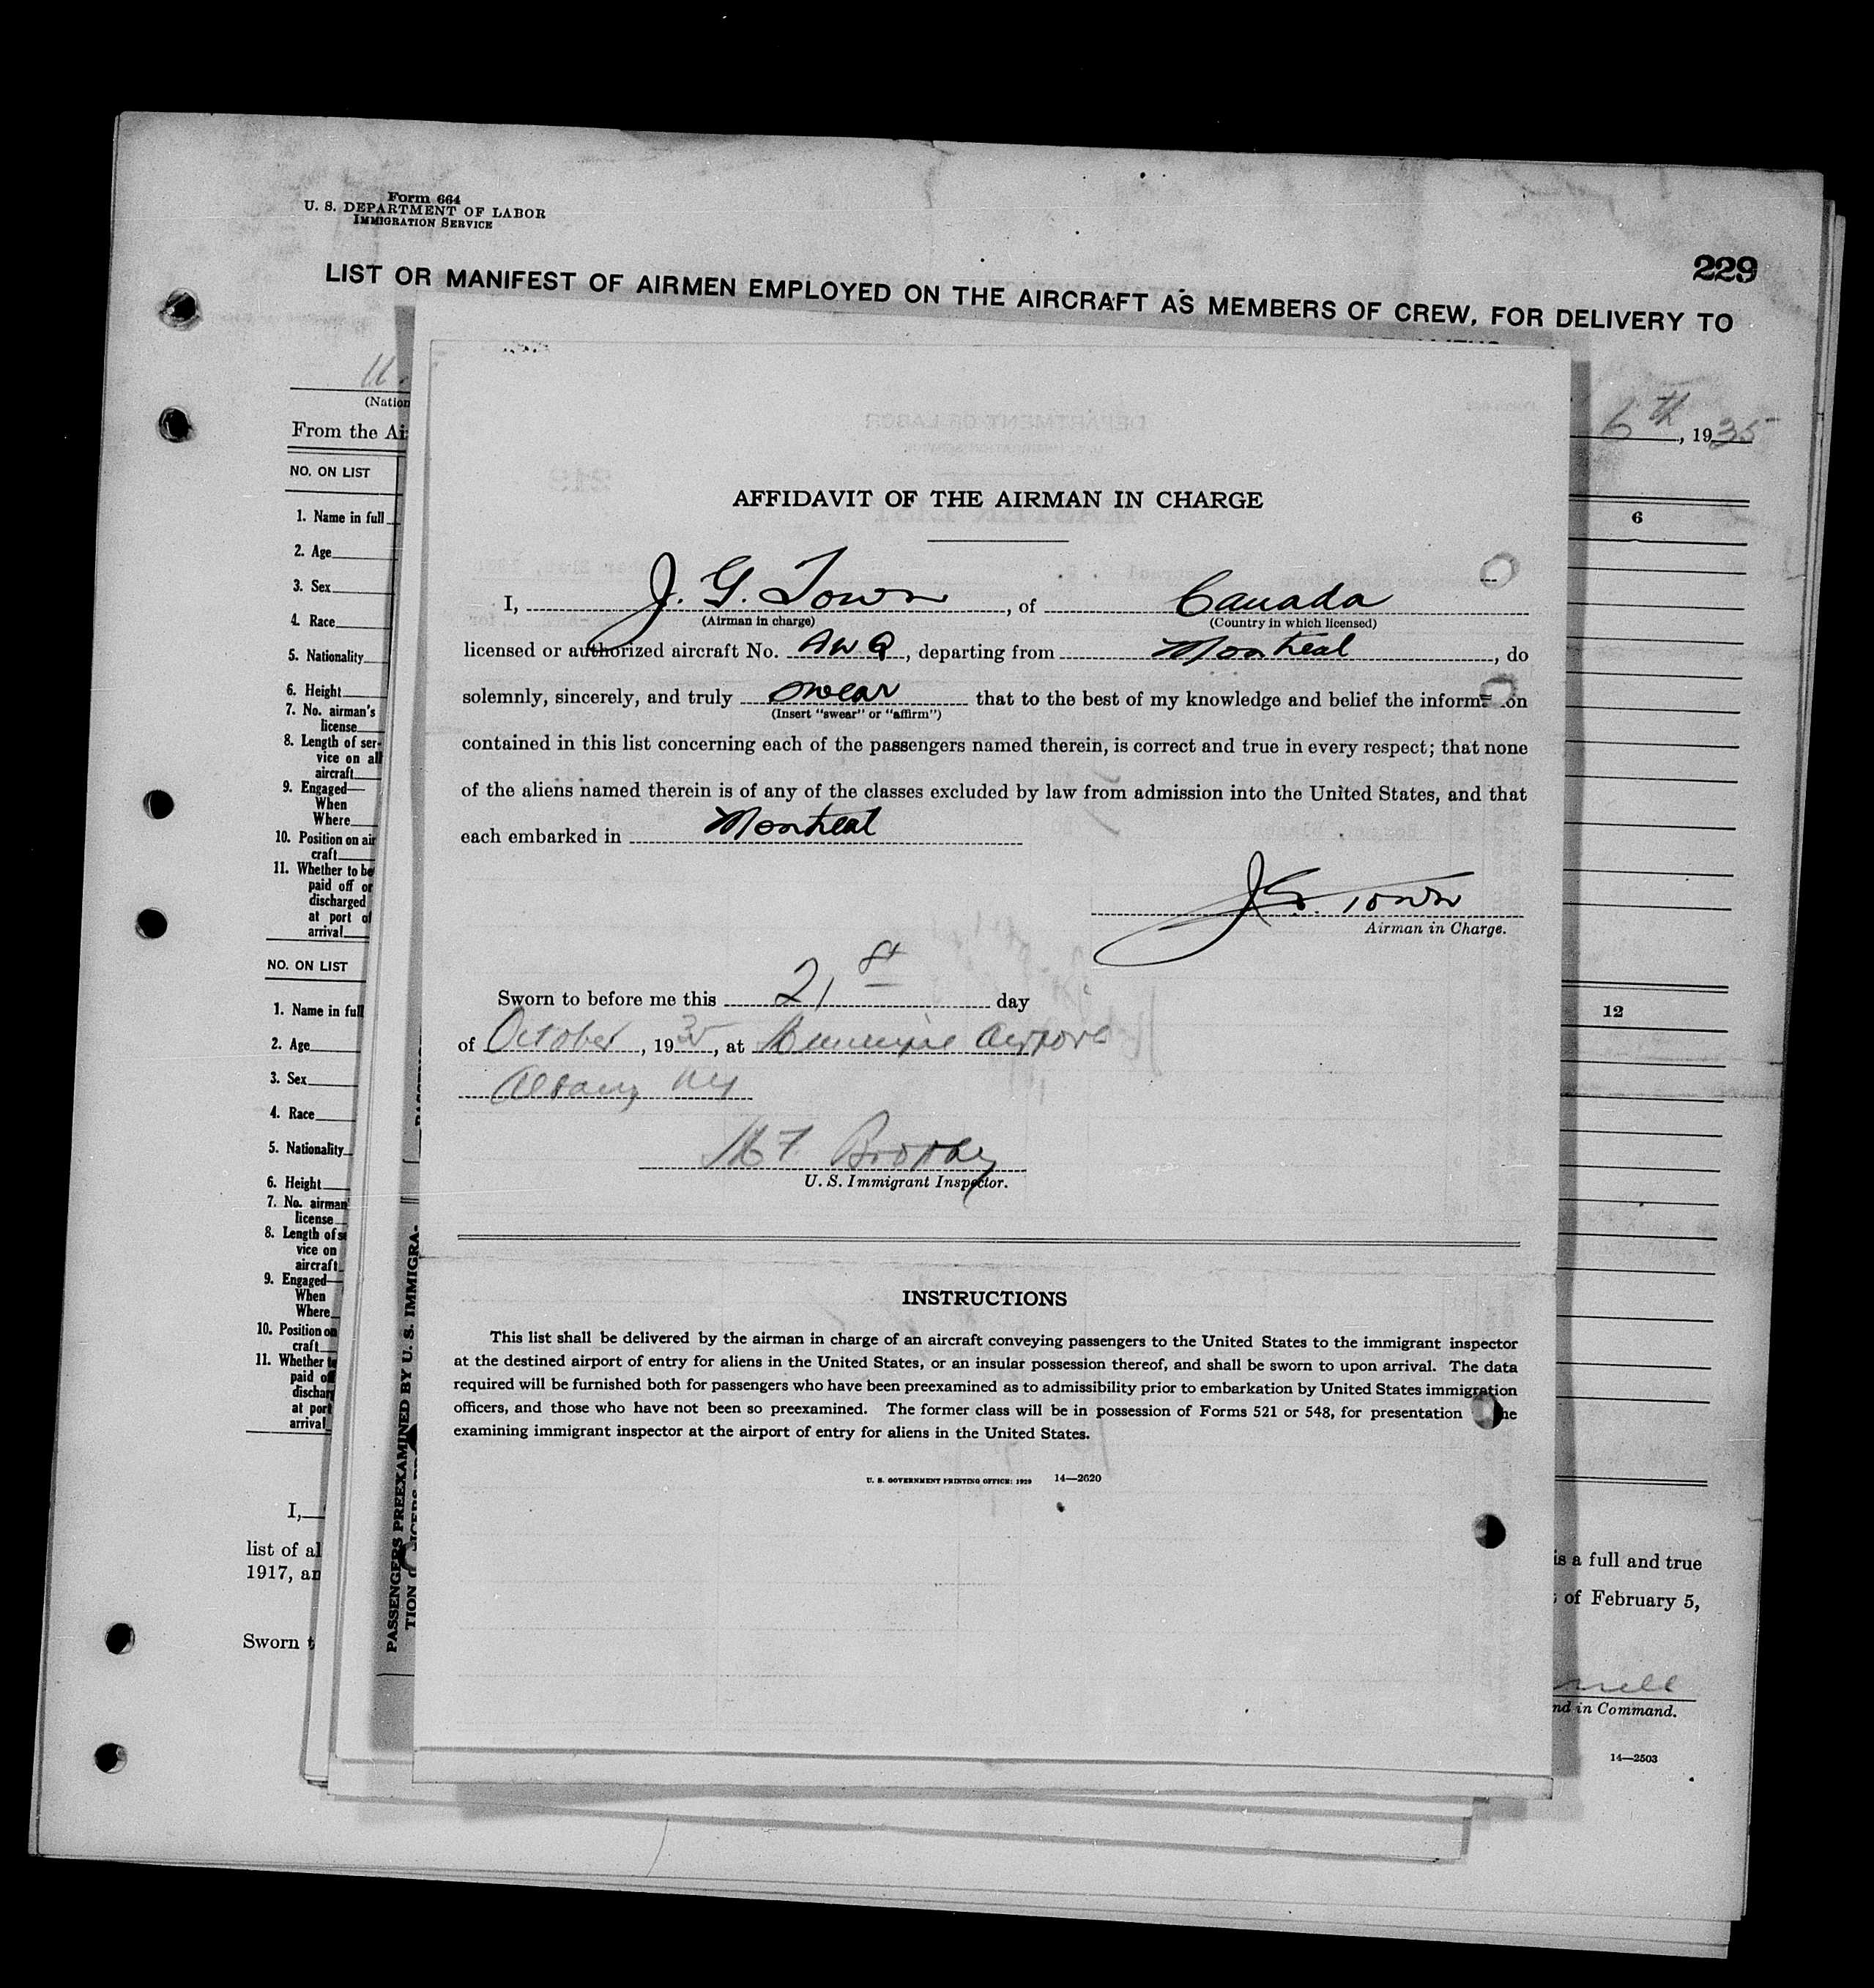 Form 664
U. S. DEPARTMENT OF LABOR
IMMIGRATION SERVICE
229
LIST OR MANIFEST OF AIRMEN EMPLOYED ON THE AIRCRAFT AS MEMBERS OF CREW, FOR DELIVERY TO
(Nation
From the Ai
6th, 1935
NO. ON LIST
6
1. Name in full
2. Age
3. Sex
4. Race
5. Nationality
6. Height
7. No. airman's
license
8. Length of ser-
vice on all
aircraft
9. Engaged—
When
Where
10. Position on air
craft
11. Whether to be
paid off or
discharged
at port of
arrival
NO. ON LIST
12
1. Name in full
2. Age
3. Sex
4. Race
5. Nationality
6. Height
7. No. airman'
license
8. Length of se
vice on
aircraft
9. Engaged—
When
Where
10. Position on
craft
11. Whether t
paid of
dischar
at port
arrival
I,
list of al
1917, an
Sworn t
is a full and true
of February 5,
nd in Command.
14—2503
PASSENGERS PREEXAMINED BY U. S. IMMIGRA-
TION
AFFIDAVIT OF THE AIRMAN IN CHARGE
I, J. G. Town, of Canada
(Airman in charge) (Country in which licensed)
licensed or authorized aircraft No. AWQ, departing from Montreal, do
solemnly, sincerely, and truly swear that to the best of my knowledge and belief the information
(Insert "swear" or "affirm")
contained in this list concerning each of the passengers named therein, is correct and true in every respect; that none
of the aliens named therein is of any of the classes excluded by law from admission into the United States, and that
each embarked in Montreal
J. G. Town
Airman in Charge.
Sworn to before me this 21st day
of October, 1935, at Airport
Albany NY
U. S. Immigrant Inspector.
INSTRUCTIONS
This list shall be delivered by the airman in charge of an aircraft conveying passengers to the United States to the immigrant inspector
at the destined airport of entry for aliens in the United States, or an insular possession thereof, and shall be sworn to upon arrival. The data
required will be furnished both for passengers who have been preexamined as to admissibility prior to embarkation by United States immigration
officers, and those who have not been so preexamined. The former class will be in possession of Forms 521 or 548, for presentation he
examining immigrant inspector at the airport of entry for aliens in the United States.
U. S. GOVERNMENT PRINTING OFFICE: 1929 14—2620